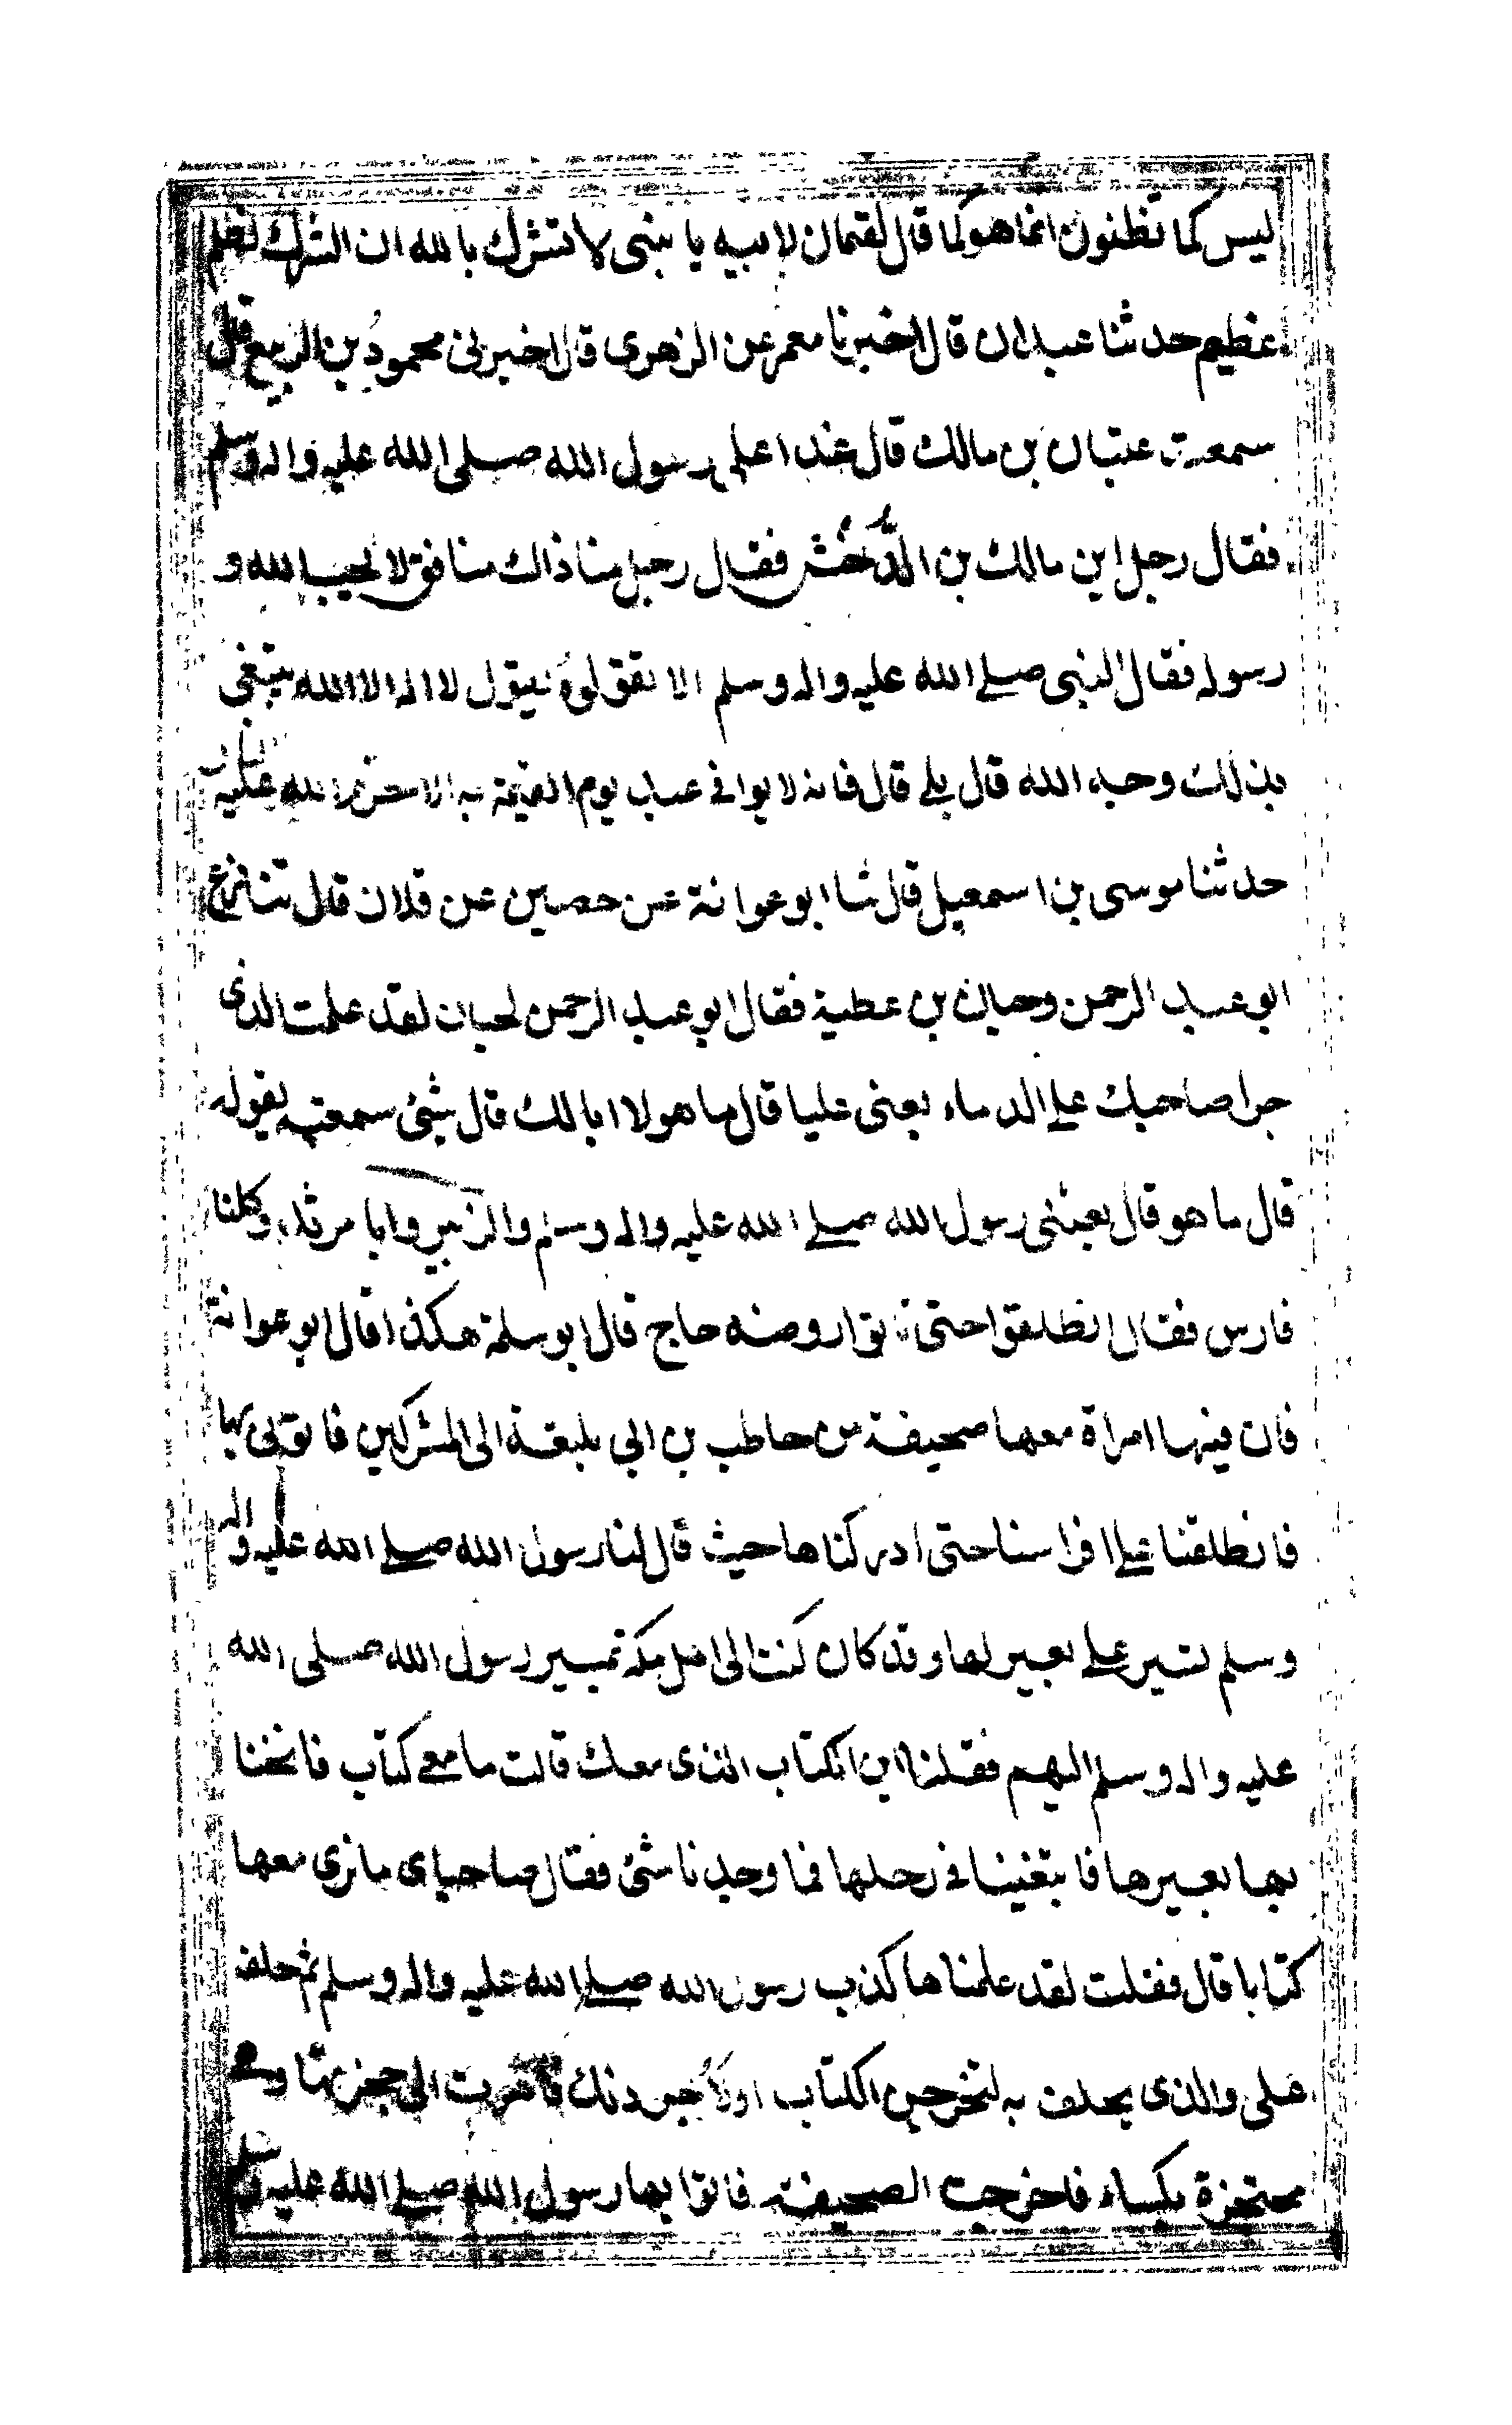 ليس كما تظنون انما هو كما قال لقمان لابنه يا بنى لا تشرك بالله ان الشرك لظلم
عظيم حدثنا عبدان قال اخبرنا معمر عن الزهرى قال اخبرنى محمود بن الربيع قال
سمعت عتبان بن مالك قال غدا على رسول الله صلى الله عليه واله وسلم
فقال رجل اين مالك بن الدخشن فقال رجل منا ذاك منافق لا يحب الله و
رسوله فقال النبى صلے الله عليه واله وسلم الا تقولوه يقول لا اله الا الله يبتغى
بذلك وجه الله قال بلے قال فانه لا يوافى عبد يوم القيمة به الا حرم الله عليه النار
حدثنا موسى بن اسمعيل قال ثنا ابو عوانة عن حصين عن فلان قال تنازع
ابو عبد الرحمن وحبان بن عطية فقال ابو عبد الرحمن لحبان لقد علمت الذى
جرا صاحبك علے الدماء يعنى عليا قال ما هو لا ابا لك قال شئ سمعته يقوله
قال ما هو قال بعثنى رسول الله صلے الله عليه واله وسلم والزبير وابا مرثد وكلنا
فارس فقال انطلقوا حتى تاتوا روضه حاج قال ابو سلمة هكذا قال ابو عوانة
فان فيها امراة معها صحيفة من حاطب بن ابي بلتعة الى المشركين فاتونى بها
فانطلقنا علے افراسنا حتى ادركناها حيث قال لنا رسول الله صلے الله عليه واله
وسلم تسير علے بعير لها وقد كان كتب الى اهل مكه بمسير رسول الله صلى الله
عليه واله وسلم اليهم فقلنا اين الكتاب الذى معك قالت ما معے كتاب فانخنا
بها بعيرها فابتغينا فى رحلها فما وجدنا شئ فقال صاحباى ما نرى معها
كتابا قال فقلت لقد علمنا ها كذب رسول الله صلے الله عليه واله وسلم ثم حلف
على والذى يحلف به لتخرجن الكتاب اولا جردنك فاهوت الى حجزتها وهے
محتجزة بكساء فاخرجت الصحيفة فاتوا بها رسول الله صلے الله عليه وسلم